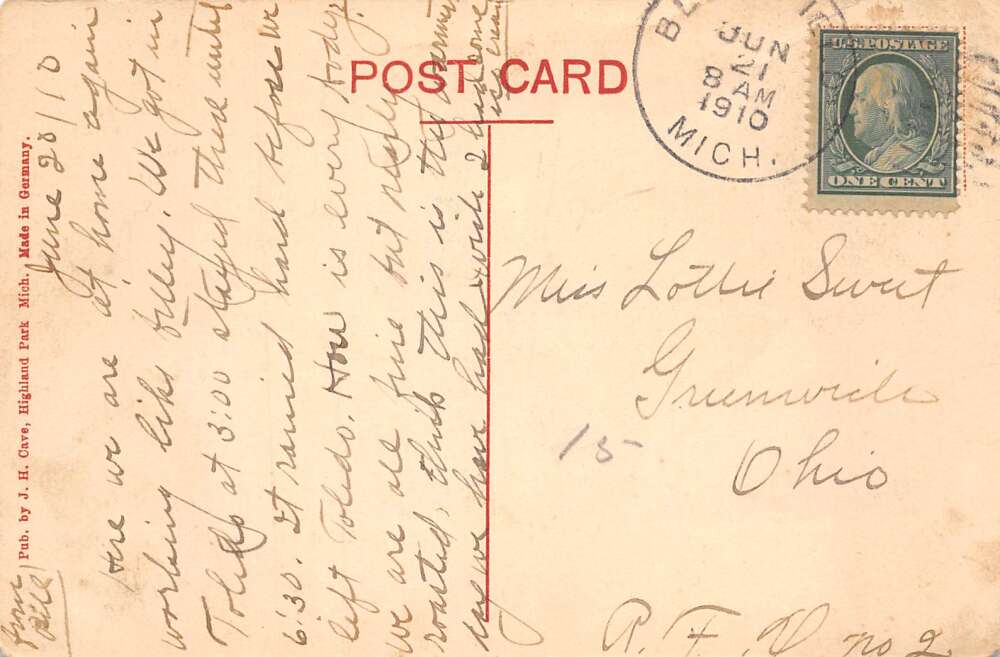 POST CARD
June 20/10
Here we are at home again
working like tolley. We got in
Toledo at 3:00 stayed there until
6:30. It rained hard before we
left Toledo. How is every body.
We are all fine but nearly
roasted, this is the warmest
day we have had wish I had some
ice cream
from
Bill
Pub. by J. H. Cave, Highland Park Mich. Made in Germany.
JUN
21
8 AM
1910
MICH.
U.S. POSTAGE
ONE CENT
Miss Lottie Sweet
Greenville
Ohio
15
R. F. D no 2.